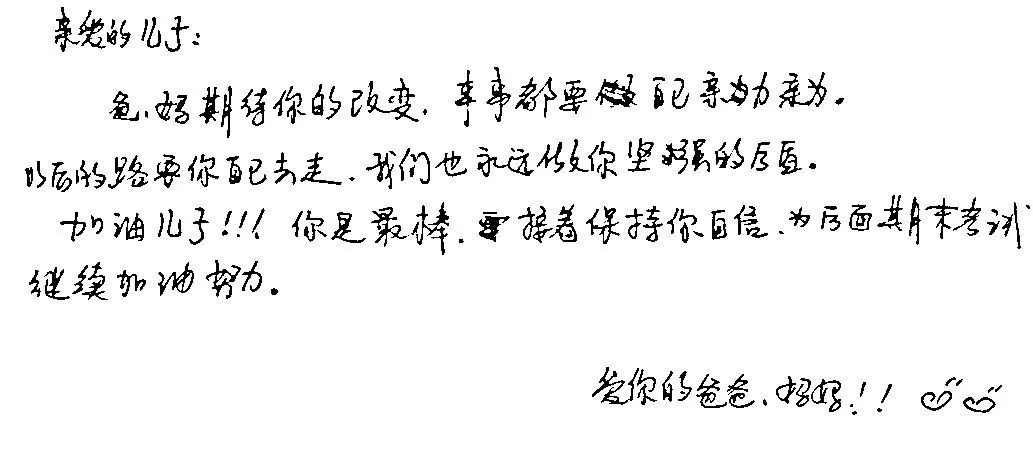 亲爱的儿子：
爸、妈期待你的改变，事事都要自己亲力亲为。
以后的路要你自己去走，我们也永远做你坚强的后盾。
加油儿子！！！你是最棒，接着保持你自信，为后面期末考试
继续加油努力。
爱你的爸爸、妈妈！！